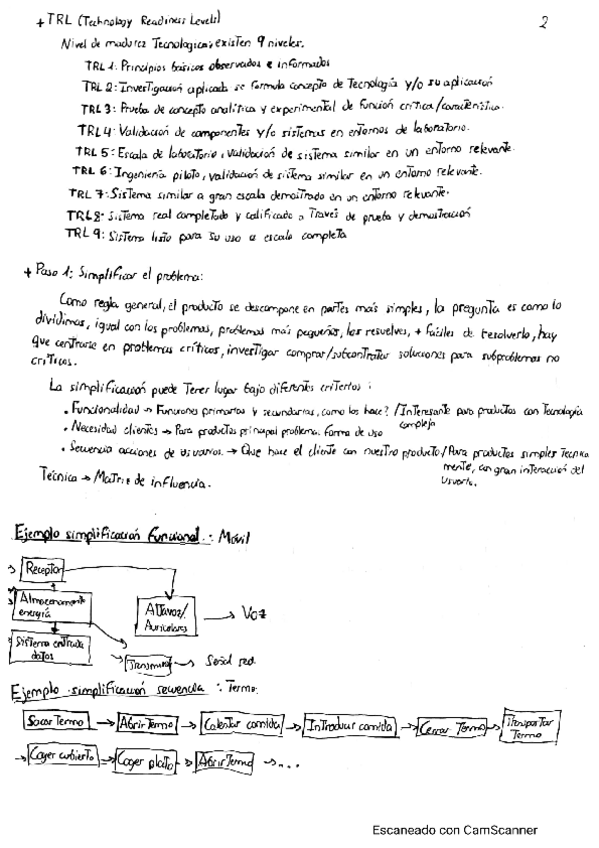 + TRL (Technology Readiness Levels)
2
Nivel de madurez Tecnologica, existen 9 niveles.
TRL 1: Principios básicos observados e informados
TRL 2: Investigación aplicada se formula concepto de Tecnología y/o su aplicación
TRL 3: Prueba de concepto analítica y experimental de función crítica/característica.
TRL 4: Validación de componentes y/o sistemas en entornos de laboratorio.
TRL 5: Escala de laboratorio, validación de sistema similar en un entorno relevante.
TRL 6: Ingeniería piloto, validación de sistema similar en un entorno relevante.
TRL 7: Sistema similar a gran escala demostrado en un entorno relevante.
TRL 8: Sistema real completado y calificado a través de prueba y demostración
TRL 9: Sistema listo para su uso a escala completa
+ Paso 1: Simplificar el problema:
Como regla general, el producto se descompone en partes más simples, la pregunta es como lo
dividimos, igual con los problemas, problemas más pequeños, los resuelves, + fáciles de resolverlo, hay
que centrarse en problemas críticos, investigar comprar/subcontratar soluciones para subproblemas no
críticos.
La simplificación puede tener lugar bajo diferentes criterios:
• Funcionalidad → Funciones primarias y secundarias, como las hace? / Interesante para productos con Tecnología
compleja
• Necesidad clientes → Para productos principal problema forma de uso
• Secuencia acciones de usuarios. → Que hace el cliente con nuestro producto / Para productos simples técnica
mente, con gran interacción del
usuario.
Técnica → Matriz de influencia.
Ejemplo simplificación funcional: Móvil
Receptor
Almacenamiento
energía
Altavoz/
Auriculares
→ Voz
Sistema entrada
datos
Transmisor → Señal red
Ejemplo simplificación secuencia: Termo
Sacar Termo → Abrir Termo → Calentar comida → Introducir comida → Cerrar Termo → Transportar
Termo
→ Coger cubierto → Coger plato → Abrir Termo → ...
Escaneado con CamScanner